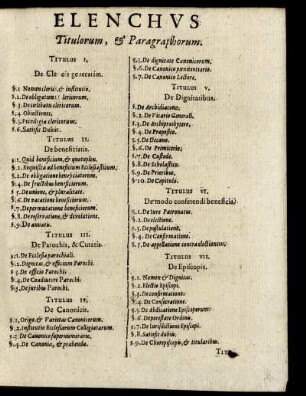 ELENCHVS
Titulorum, & Paragraphorum.
TITULUS I.
De Clericis generatim.
§.1 Nomen cleric., & institutio.
§.2. De obligatione clericorum.
§.3. De celibatu clericorum.
§.4. Obiectiones.
§.5. Privilegia clericorum.
§.6. Satisfit Dubiis.
TITULUS II.
De Beneficiatis.
§.1. Quid beneficium, & quotuplex.
§.2. Requisita ad beneficium Ecclesiasticum.
§.3. De obligatione beneficiatorum.
§.4. De fructibus beneficiorum.
§.5. De unione, & pluralitate.
§.6. De vacatione beneficiorum.
§.7. De permutatione beneficiorum.
§.8. De reservatione, & devolutione.
§.9. De annatis.
TITULUS III.
De Parochis, & Curatis.
§.1. De Ecclesia parochiali.
§.2. Dignitas, & officium Parochi.
§.3. De officio Parochi.
§.4. De Coadiutore Parochi.
§.5. De juribus Parochi.
TITULUS IV.
De Canonicis.
§.1. Origo, & Varietas Canonicorum.
§.2. Institutio Ecclesiarum Collegiatarum.
§.3. De Canonico supernumerario.
§.4. De Canonia, & præbenda.
§.5. De dignitate Canonicorum.
§.6. De Canonico pœnitentiario.
§.7. De Canonico Lectore.
TITULUS V.
De Dignitatibus.
§. De Archidiacono.
§.2. De Vicario Generali.
§.3. De Archipresbytero.
§.4. De Præposito.
§.5. De Decano.
§.6. De Primicerio.
§.7. De Custode.
§.8. De Scholastico.
§.9. De Prioribus.
§.10. De Capitulo.
TITULUS VI.
De modo conferendi beneficia.
§.1. De iure Patronatus.
§.2. De electione.
§.3. De postulatione.
§.4. De Confirmatione.
§.5. De appellatione contra electionem.
TITULUS VII.
De Episcopis.
§.1. Nomen & Dignitas.
§.2. Electio Episcopi.
§.3. De confirmatione.
§.4. De Consecratione.
§.5. De Abdicatione Episcoporum.
§.6. De potestate Ordinis.
§.7. De Iurisdictione Episcopi.
§.8. Satisfit dubiis.
§.9. De Chorepiscopis, & titularibus.
TIT